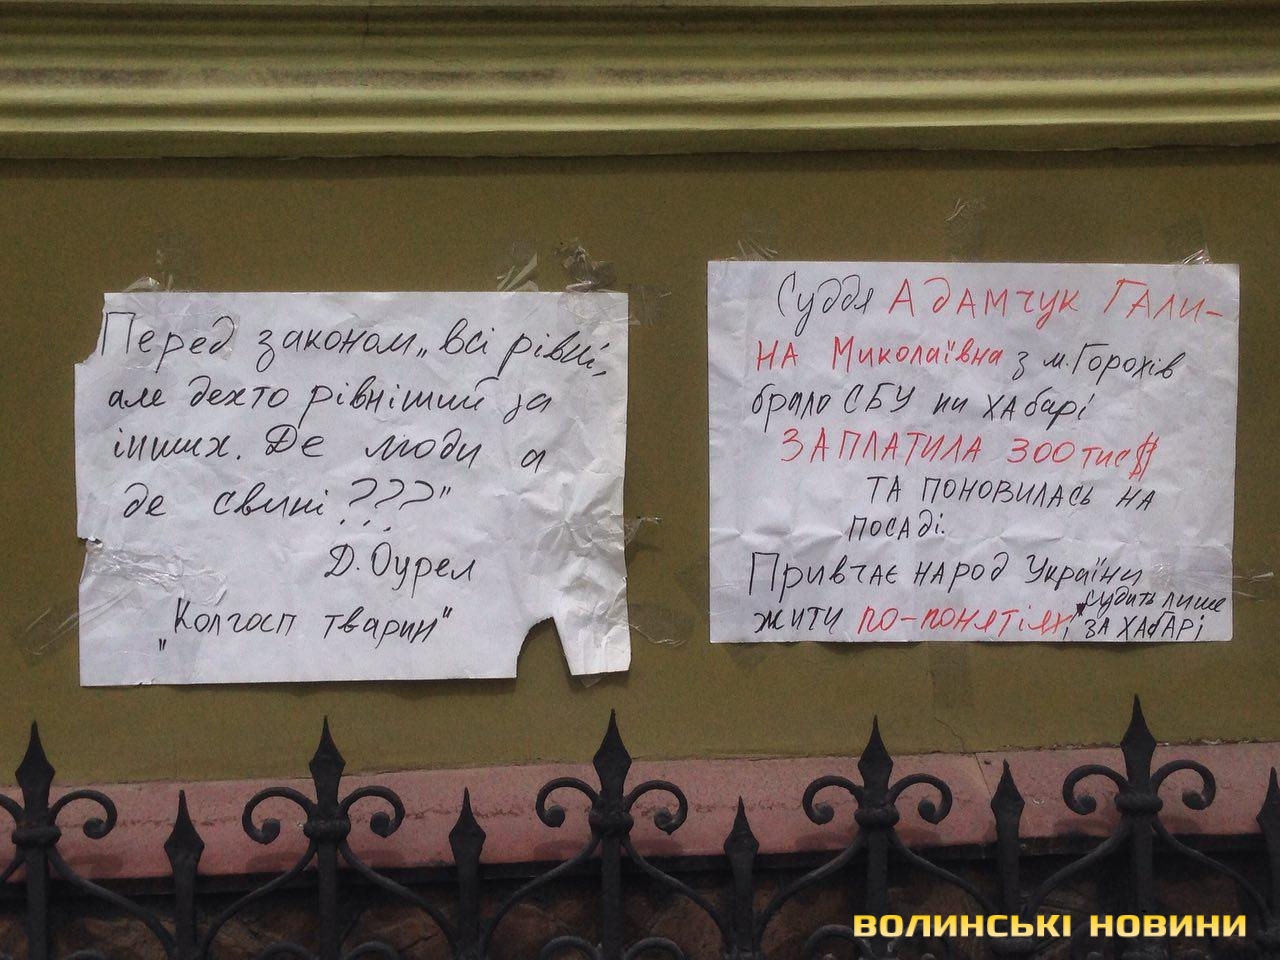 Перед законом „всі рівні,
але дехто рівніший за
інших. Де люди а
де свині ???"
Д. Оурел
„Колгосп тварин"
Суддя АДАМЧУК ГАЛИ-
НА Миколаївна з м. Горохів
брало СБУ ни хабарі
ЗАПЛАТИЛА 300 тис $
ТА ПОНОВИЛАСЬ НА
ПОСАДі.
Привчає народ України
жити по-понятіях, судить лише
ЗА ХАБАРІ
ВОЛИНСЬКІ НОВИНИ